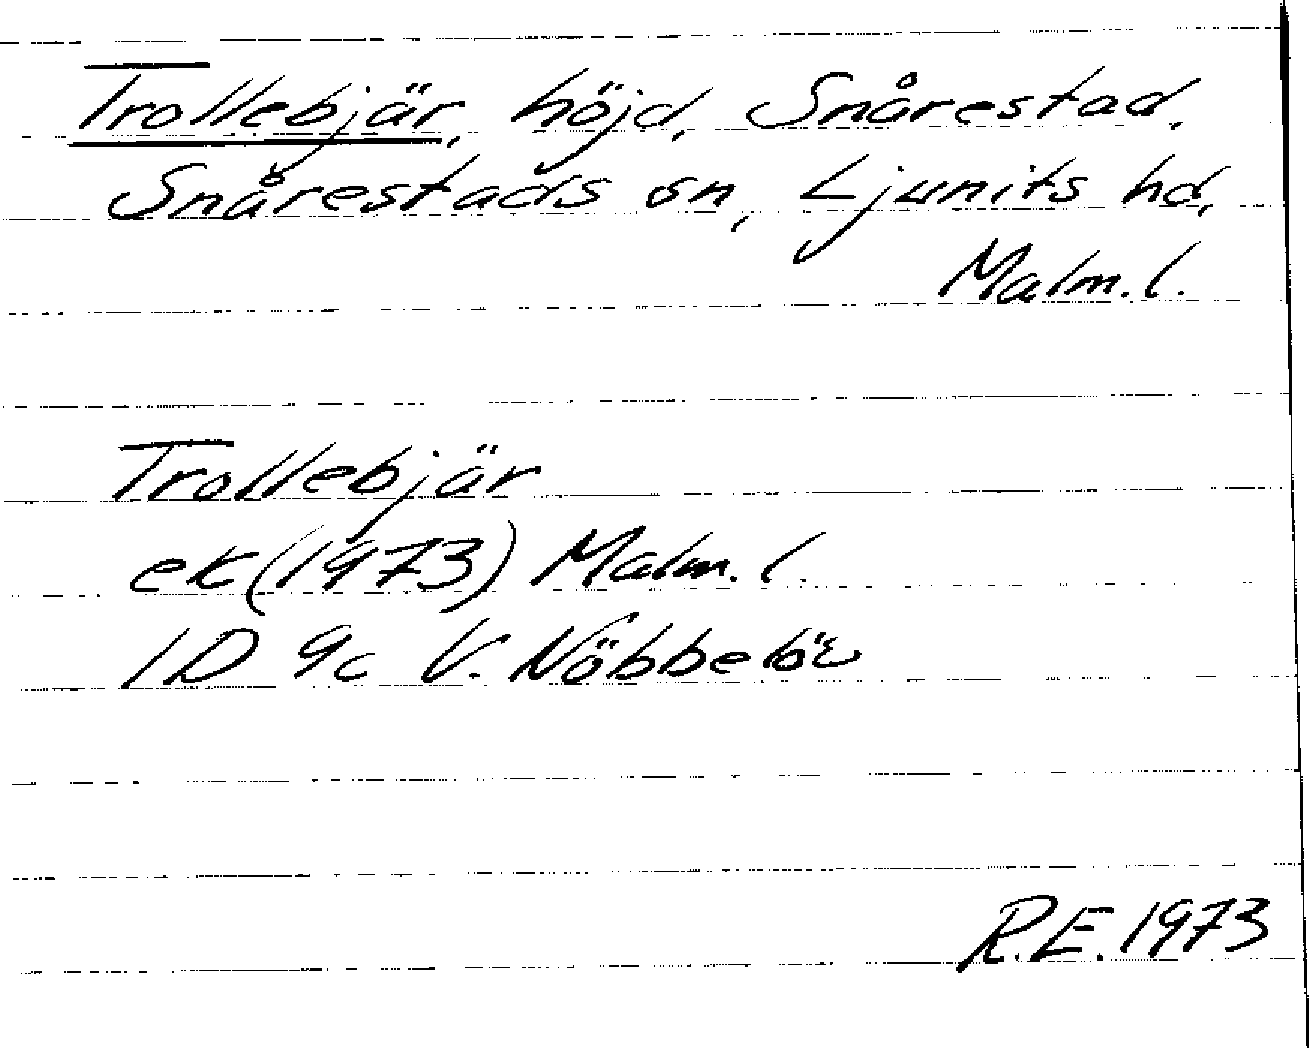 Trollebjär, höjd, Snårestad,
Snårestads sn, Ljunits hd,
Malm. l.
Trollebjär
ek (1973) Malm. l.
1D 9c V. Nöbbelöv
R.E. 1973